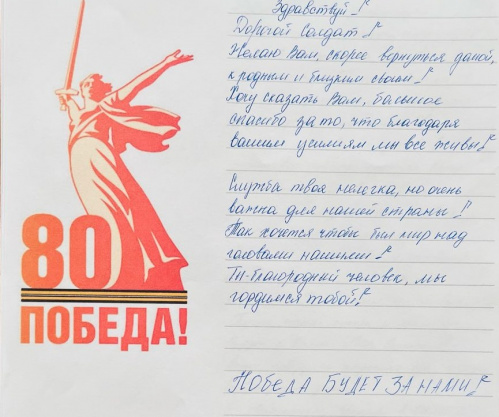 Здравствуй!
Дорогой Солдат!
Желаю Вам, скорее вернутся домой,
к родным и близким своим!
Хочу сказать Вам, большое
спасибо за то, что благодаря
вашим усилиям мы все живы!
Служба твоя нелегка, но очень
важна для нашей страны!
Так хочется чтобы был мир над
головами нашими!
Ты-благородный человек, мы
гордимся тобой!
ПОБЕДА БУДЕТ ЗА НАМИ!
80
ПОБЕДА!